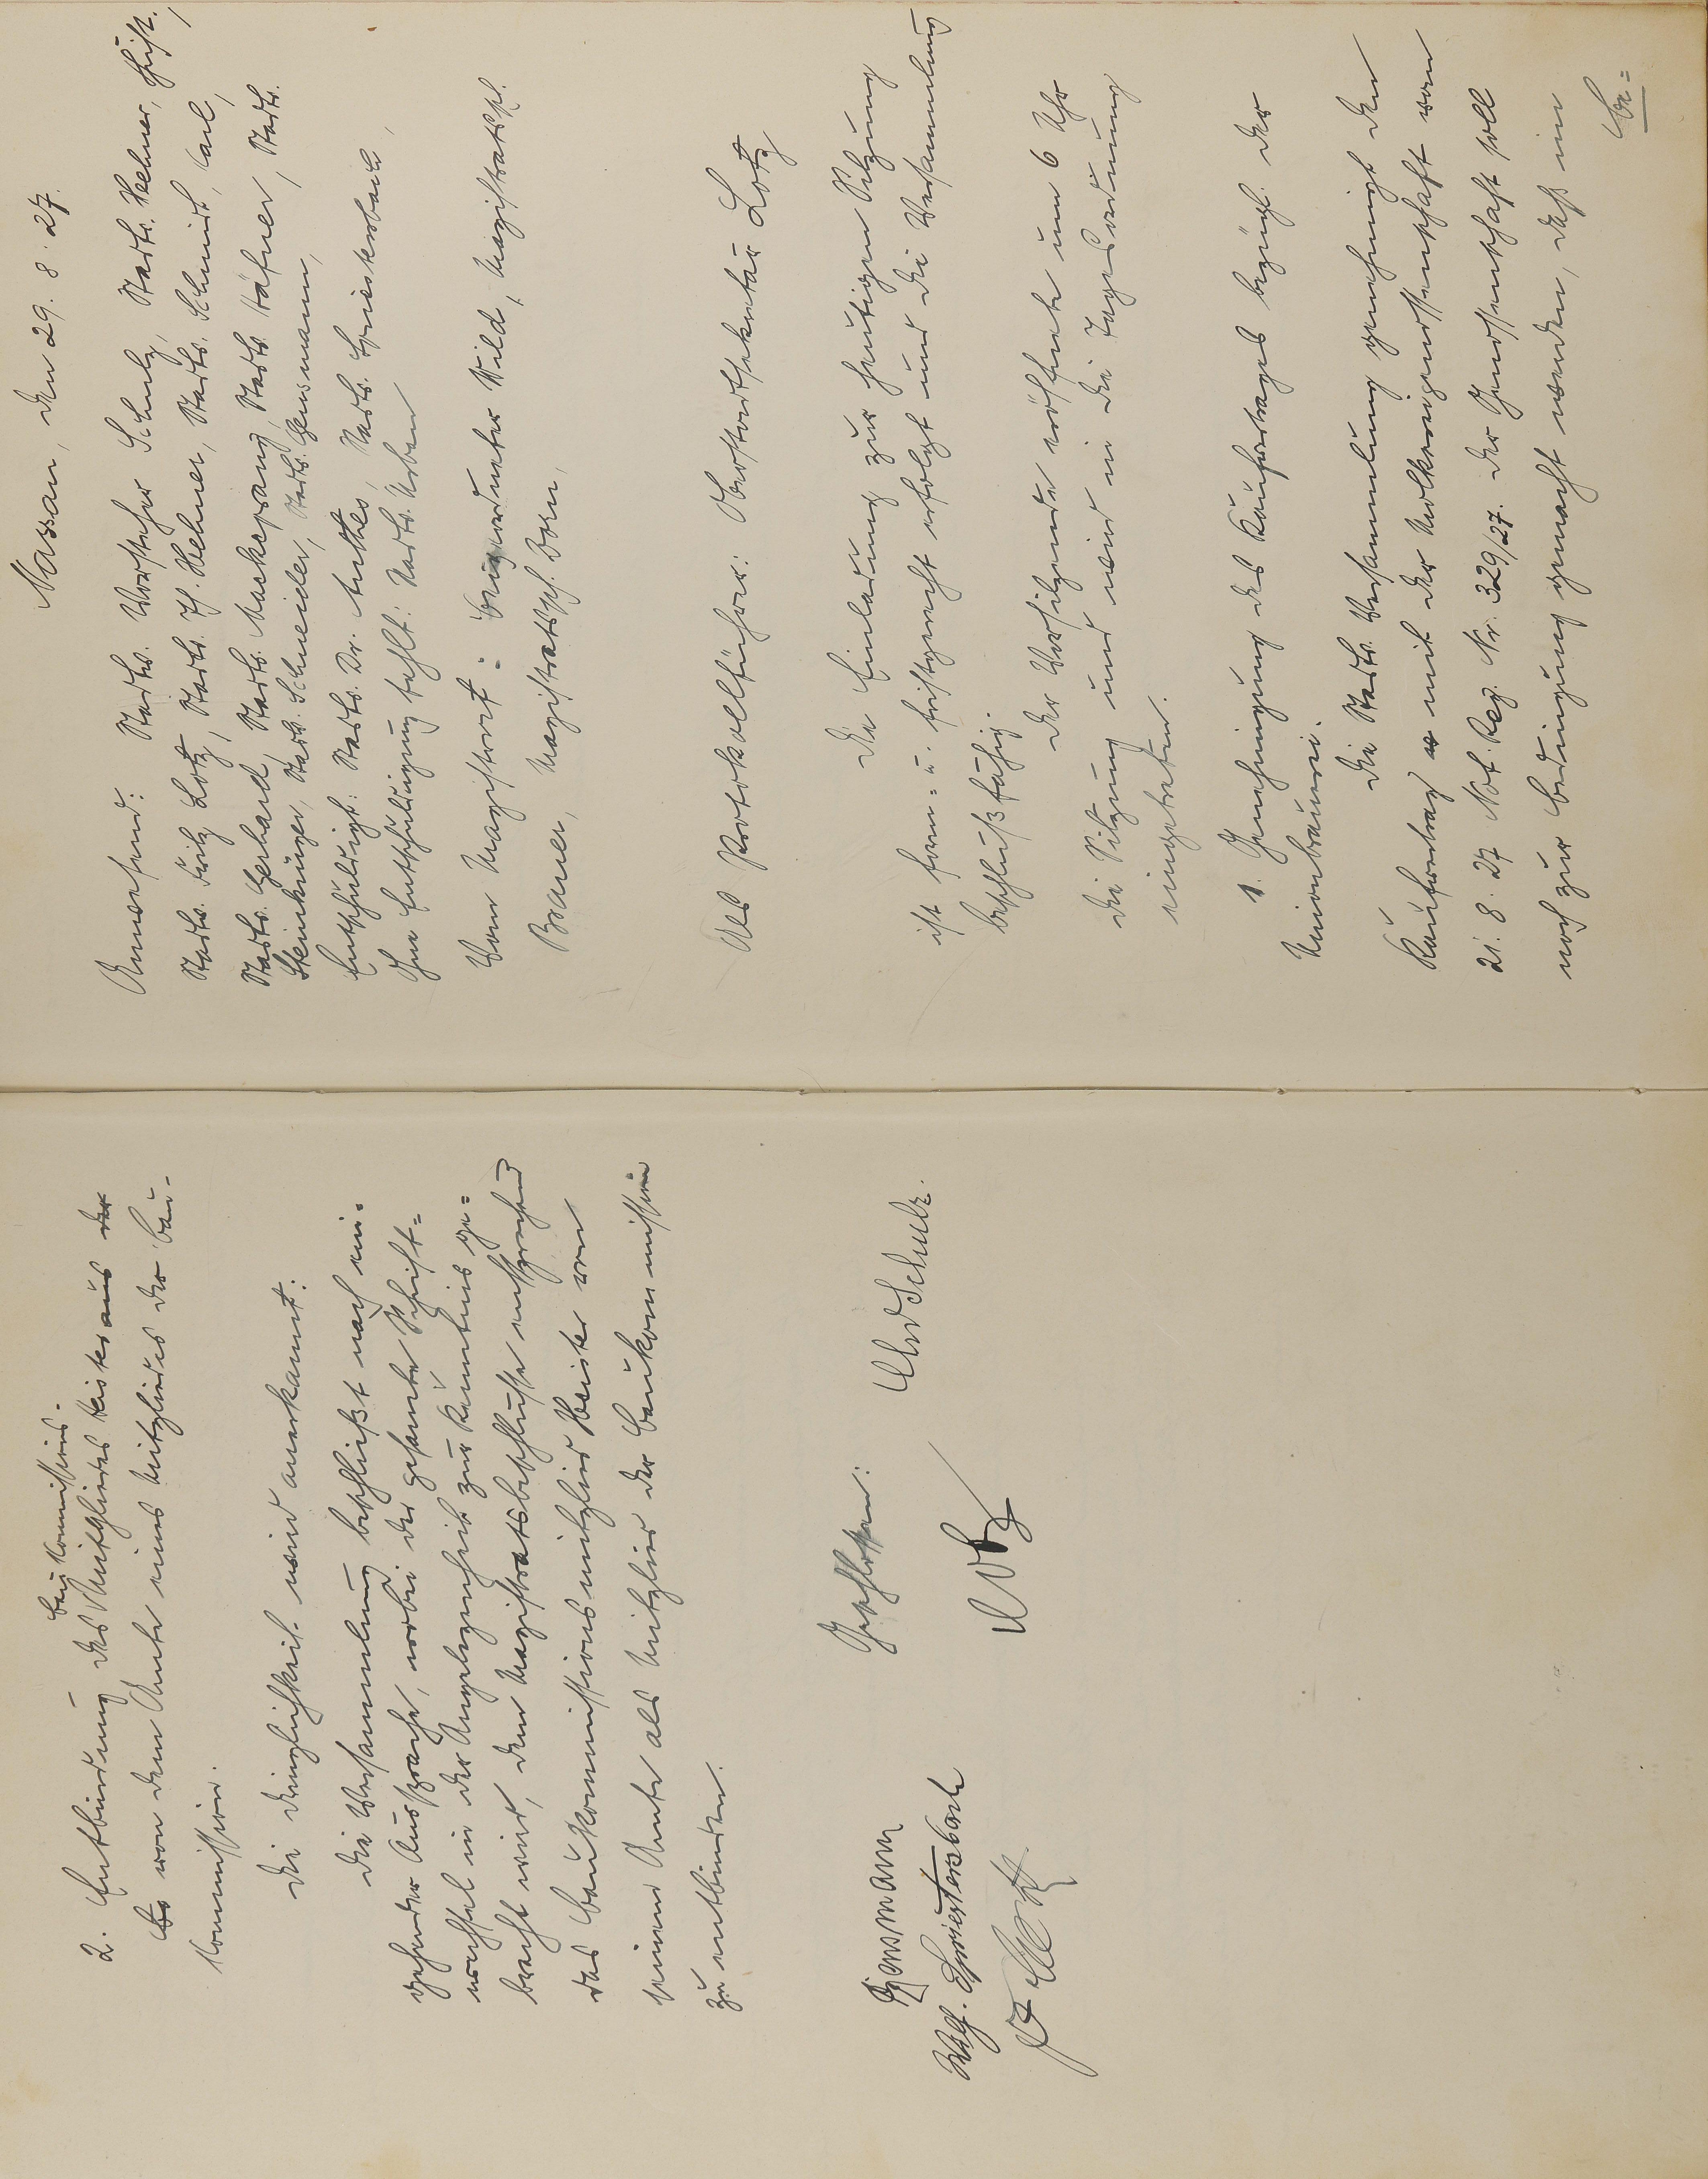 2. Entbindung des Mitgliedes Heister aus der
Baukommissions-
von dem Amte eines Mitgliedes der Bau-
kommission.
Die Dringlichkeit wird anerkannt.
Die Versammlung beschließt nach ein-
gehender Aussprache, wobei der gesamte Schrift-
wechsel in der Angelegenheit zur Kenntnis ge-
bracht wird, dem Magistratsbeschlusse entsprechend
das Baukommissionsmitglied Heister von
seinem Amte als Mitglied der Baukommission
zu entbinden.
Geschlossen:
Schulz.
Gensmann
Spriestersbach
Lotz
Nassau, den 29. 8. 27.
Anwesend: Stadtv. Vorsteher Schulz, Stadtv. Hehner, Chist.,
Stadtv. Fritz Lotz, Stadtv. Jh. Hehner, Stadtv. Schmidt, Carl,
Stadtv. Gerhard, Stadtv. Mackeprang, Stadtv. Häfner, Stadtv.
Steinhäuser, Stadtv. Schneider, Stadtv. Gensmann,
Entschuldigt: Stadtv. Dr. Anthes, Stadtv. Spriestersbach,
Ohne Entschuldigung fehlt: Stadtv. Urban
Vom Magistrat: Beigeordneter Wild, Magistratsschf.
Bauer, Magistratsschf. Born,
Als Protokollführer: Oberstadtsekretär Lotz
Die Einladung zur heutigen Sitzung
ist form- u. fristgerecht erfolgt und die Versammlung
beschlußfähig.
Der Vorsitzende eröffnete um 6 Uhr
die Sitzung und wird in die Tagesordnung
eingetreten.
1. Genehmigung des Kaufvertrages bezügl. der
Unionbrauerei.
Die Stadtv. Versammlung genehmigt den
Kaufvertrag mit der Molkereigenossenschaft vom
21. 8. 27 Not. Reg. Nr. 329/27. Der Genossenschaft soll
noch zur Bedingung gemacht werden, daß im